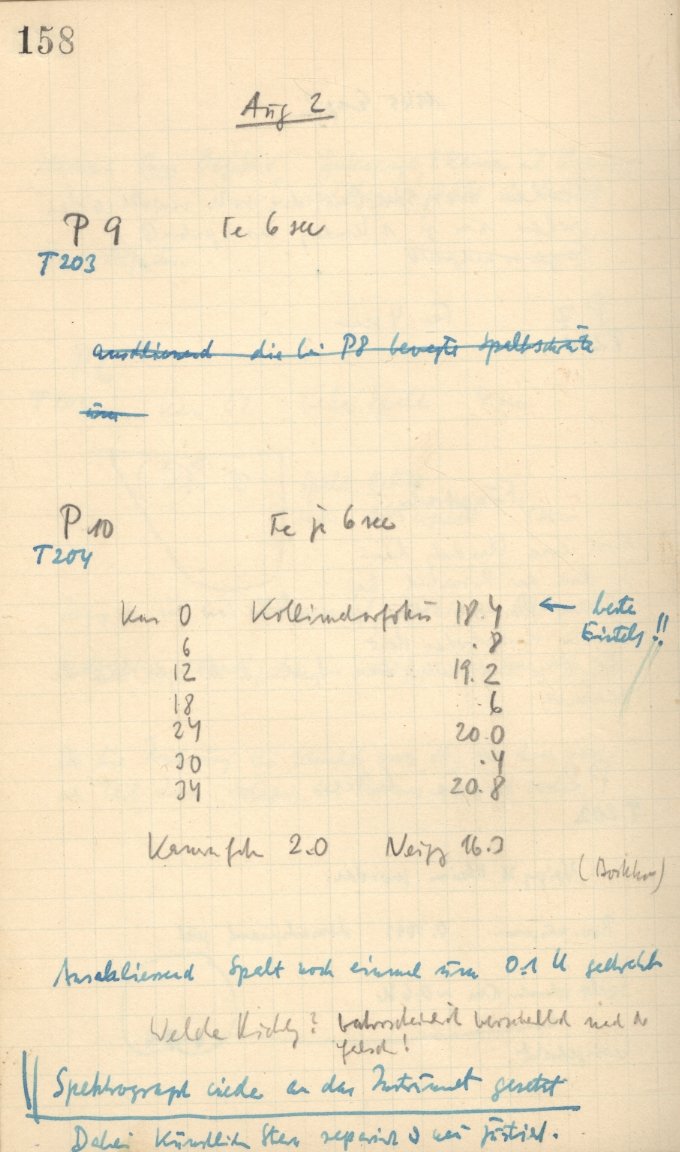 158
Aug 2
P 9 Fe 6 sec
T203
anschliessend die bei P8 bewegte Spaltschraube
um
P 10 Fe je 6 sec
T204
Kas 0 Kollimatorfokus 18.4 ← beste
6 .8 Einstellg!!
12 19.2
18 6
24 20.0
30 .4
34 20.8
Kamerafok 2.0 Neigg 16.3
Anschliessend Spalt noch einmal um 0.1 U gedreht
Welche Richtg? wahrscheinlich
falsch!
Spektrograph wieder an das Instrument gesetzt
Dabei Künstlich Stern repariert & neu justiert.